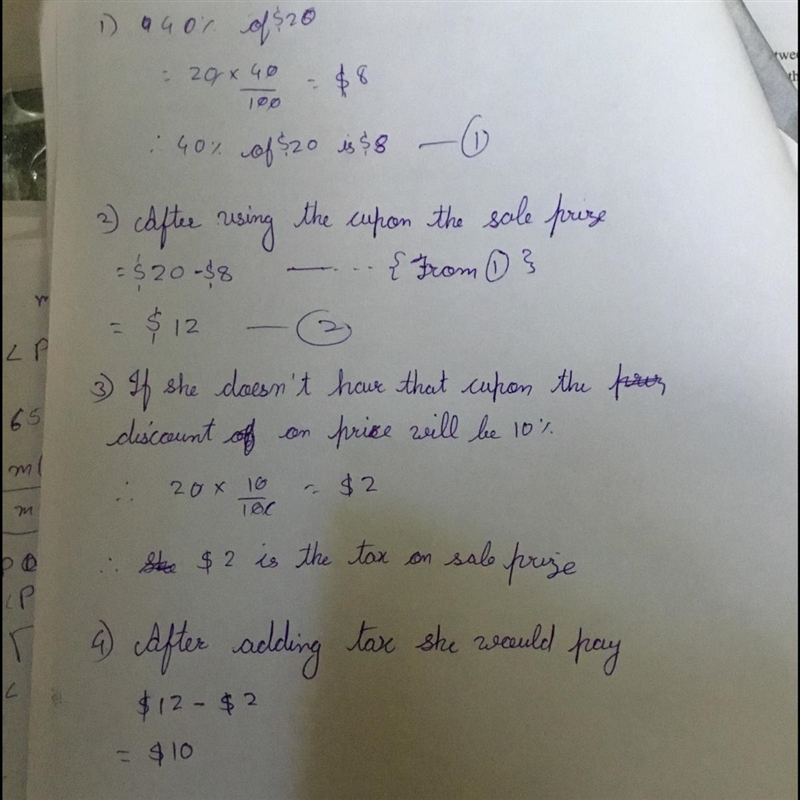 1) 440% of $20
= 20 × 40/100 = $8
∴ 40% of $20 is $8 — ①
2) After using the cupon the sale prize
= $20 - $8 — --- {From ①}
= $12 — ②
3) If she doesn't have that cupon the
discount on price will be 10%
∴ 20 × 10/100 = $2
∴ $2 is the tax on sale prize
4) After adding tax she would pay
$12 - $2
= $10
∠P
65
m
PO
∠P